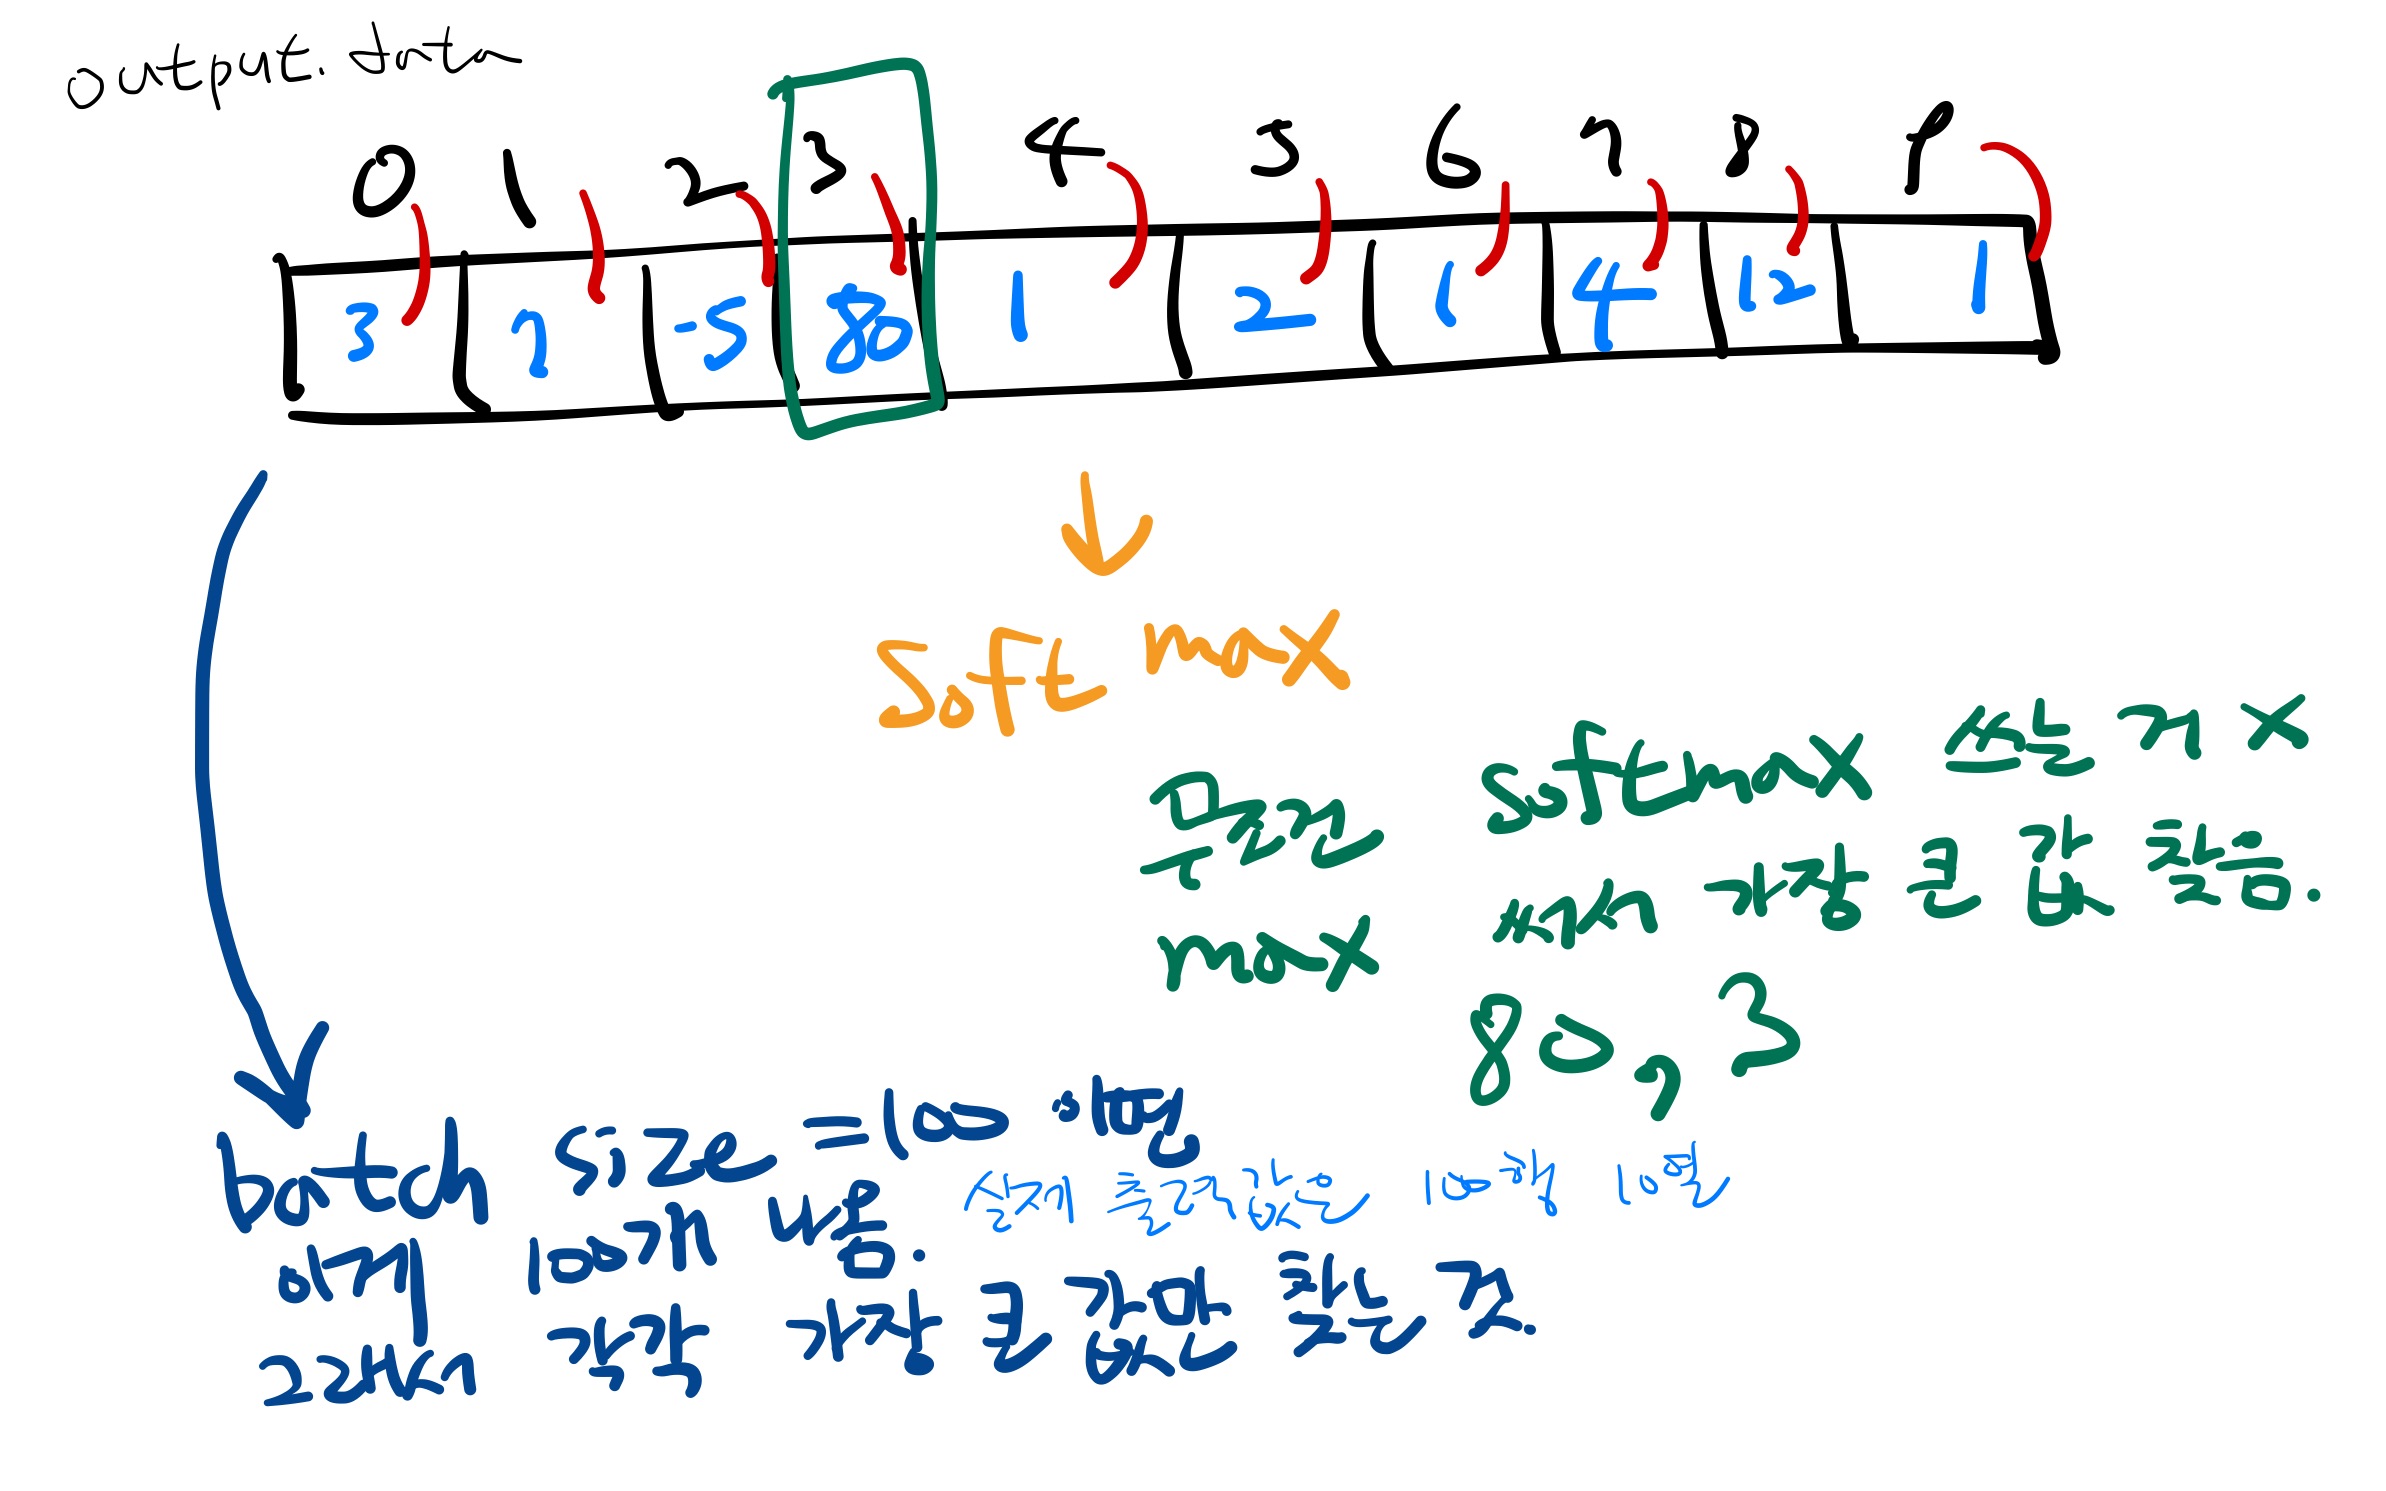 output.data
0 1 2 3 4 5 6 7 8 9
3 7 -5 80 1 2 1 4 12 1
soft max
무조건
max
softmax 쓰는 거 X
써서 가장 큰 값 출력.
80, 3
batch size = 100 이면,
실제 출력값은 100행 10열
여기 100개 나옴.
각각 가장 큰 값만 찾는 것.